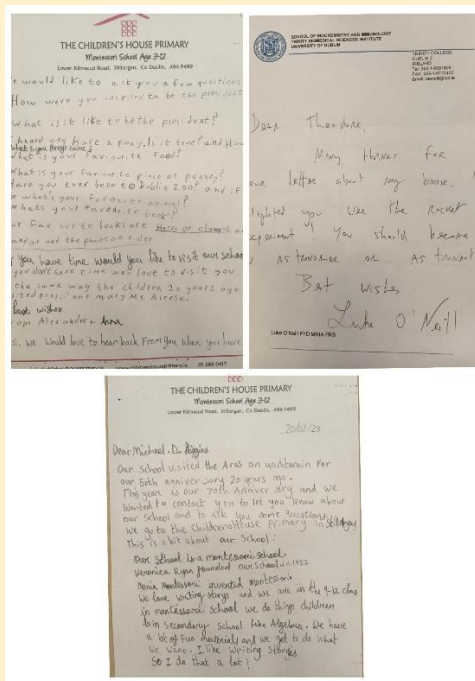 THE CHILDREN'S HOUSE PRIMARY
Montessori School Age 3-12
Lower Kilmacud Road, Stillorgan, Co Dublin, A94 P499
e would like to ask you a few questions
How were you inspired to be the president
What is it like to be the president?
heard you have a
is it true? and How
What is your favourite food?
What is your favourite piece of poetry?
Have you ever been to Dublin Zoo? and if
what's your favourite animal?
What's your favourite book?
Favourite books are Heros of olympus
and the phantom
you have time, would you like to visit our school
you don't have time we would love to visit you
the same way the children 20 years ago
Best wishes
Alexander & Anna
s. we would love to hear back from you when you have
SCHOOL OF BIOCHEMISTRY AND IMMUNOLOGY
TRINITY BIOMEDICAL SCIENCES INSTITUTE
UNIVERSITY OF DUBLIN
TRINITY COLLEGE
DUBLIN 2
IRELAND
Dear Theodore,
Many thanks for
letter about my book.
lighted you like the Rocket
experiment! You should become
Best wishes
Luke O'Neill
Luke O'Neill PhD MRIA FRS
THE CHILDREN'S HOUSE PRIMARY
Montessori School Age 3-12
Lower Kilmacud Road, Stillorgan, Co Dublin, A94 P499
Dear Michael. D. Higgins
Our school visited the Aras an uachtarain for
our 50th anniversary 20 years ago.
This year is our 70th Anniversary and we
wanted to contact you to let you know about
our school and to ask you some questions
we go to the Childrens House primary in Stillorgan
This is a bit about our School:
Our School is a montessori school.
Veronica Ryan founded our School in 1953
Maria Montessori invented montessori
We love writing storys and we are in the 9-12 class
in montessori school we do things children
do in secondary school like Algebra. We have
a lot of fun materials and we get to do what
we want. I like writing stories
So I do that a lot!